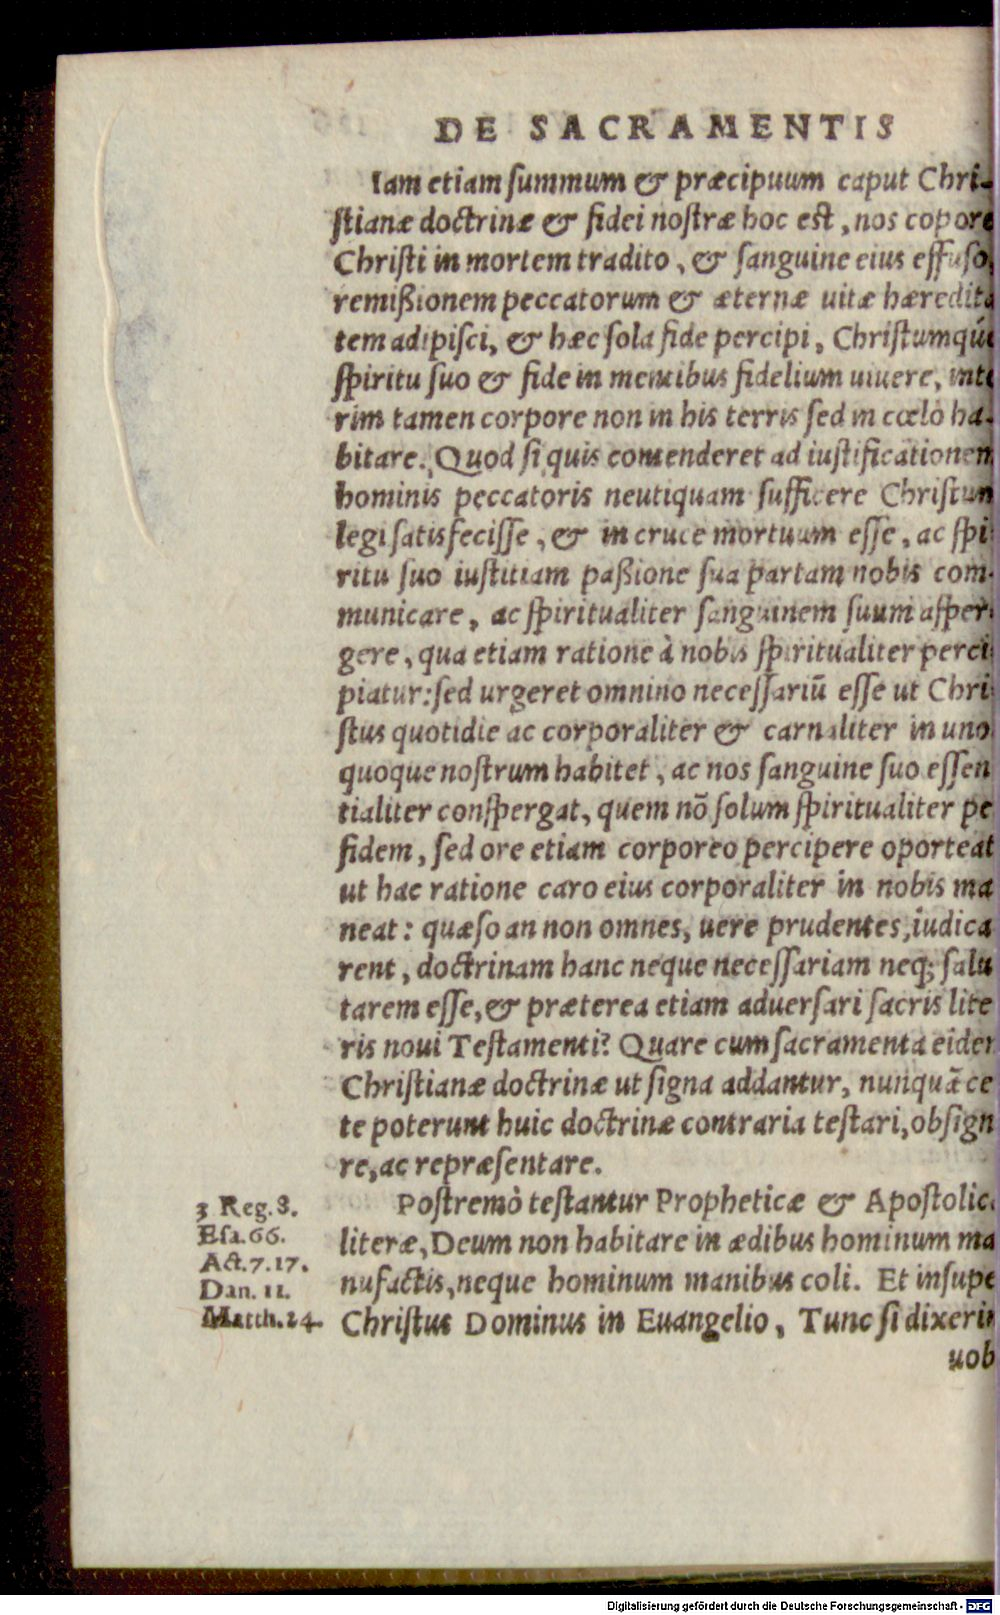 DE SACRAMENTIS
Iam etiam summum & præcipuum caput Chri-
stianæ doctrinæ & fidei nostræ hoc est, nos copore
Christi in mortem tradito, & sanguine eius effuso,
remißionem peccatorum & æternæ uitæ hæredita
tem adipisci, & hæc sola fide percipi, Christumq́ue
spiritu suo & fide in mentibus fidelium uiuere, inte
rim tamen corpore non in his terris sed in cœlo ha-
bitare. Quod si quis contenderet ad iustificationem
hominis peccatoris neutiquam sufficere Christum
legi satisfecisse, & in cruce mortuum esse, ac spi
ritu suo iustitiam paßione sua partam nobis com-
municare, ac spiritualiter sanguinem suum asper-
gere, qua etiam ratione à nobis spiritualiter perci
piatur: sed urgeret omnino necessariũ esse ut Chri
stus quotidie ac corporaliter & carnaliter in uno
quoque nostrum habitet, ac nos sanguine suo essen
tialiter conspergat, quem nõ solum spiritualiter pe
fidem, sed ore etiam corporeo percipere oporteat
ut hac ratione caro eius corporaliter in nobis ma
neat: quæso an non omnes, uere prudentes, iudica
rent, doctrinam hanc neque necessariam neq; salu
tarem esse, & præterea etiam aduersari sacris lite
ris noui Testamenti? Quare cum sacramenta eider
Christianæ doctrinæ ut signa addantur, nunquã ce
te poterunt huic doctrinæ contraria testari, obsign
re, ac repræsentare.
Postremò testantur Propheticæ & Apostolic
literæ, Deum non habitare in ædibus hominum ma
nufactis, neque hominum manibus coli. Et insupe
Christus Dominus in Euangelio, Tunc si dixerin
uob
3 Reg. 8.
Esa. 66.
Act. 7. 17.
Dan. 11.
Matth. 24.
Digitalisierung gefördert durch die Deutsche Forschungsgemeinschaft - DFG